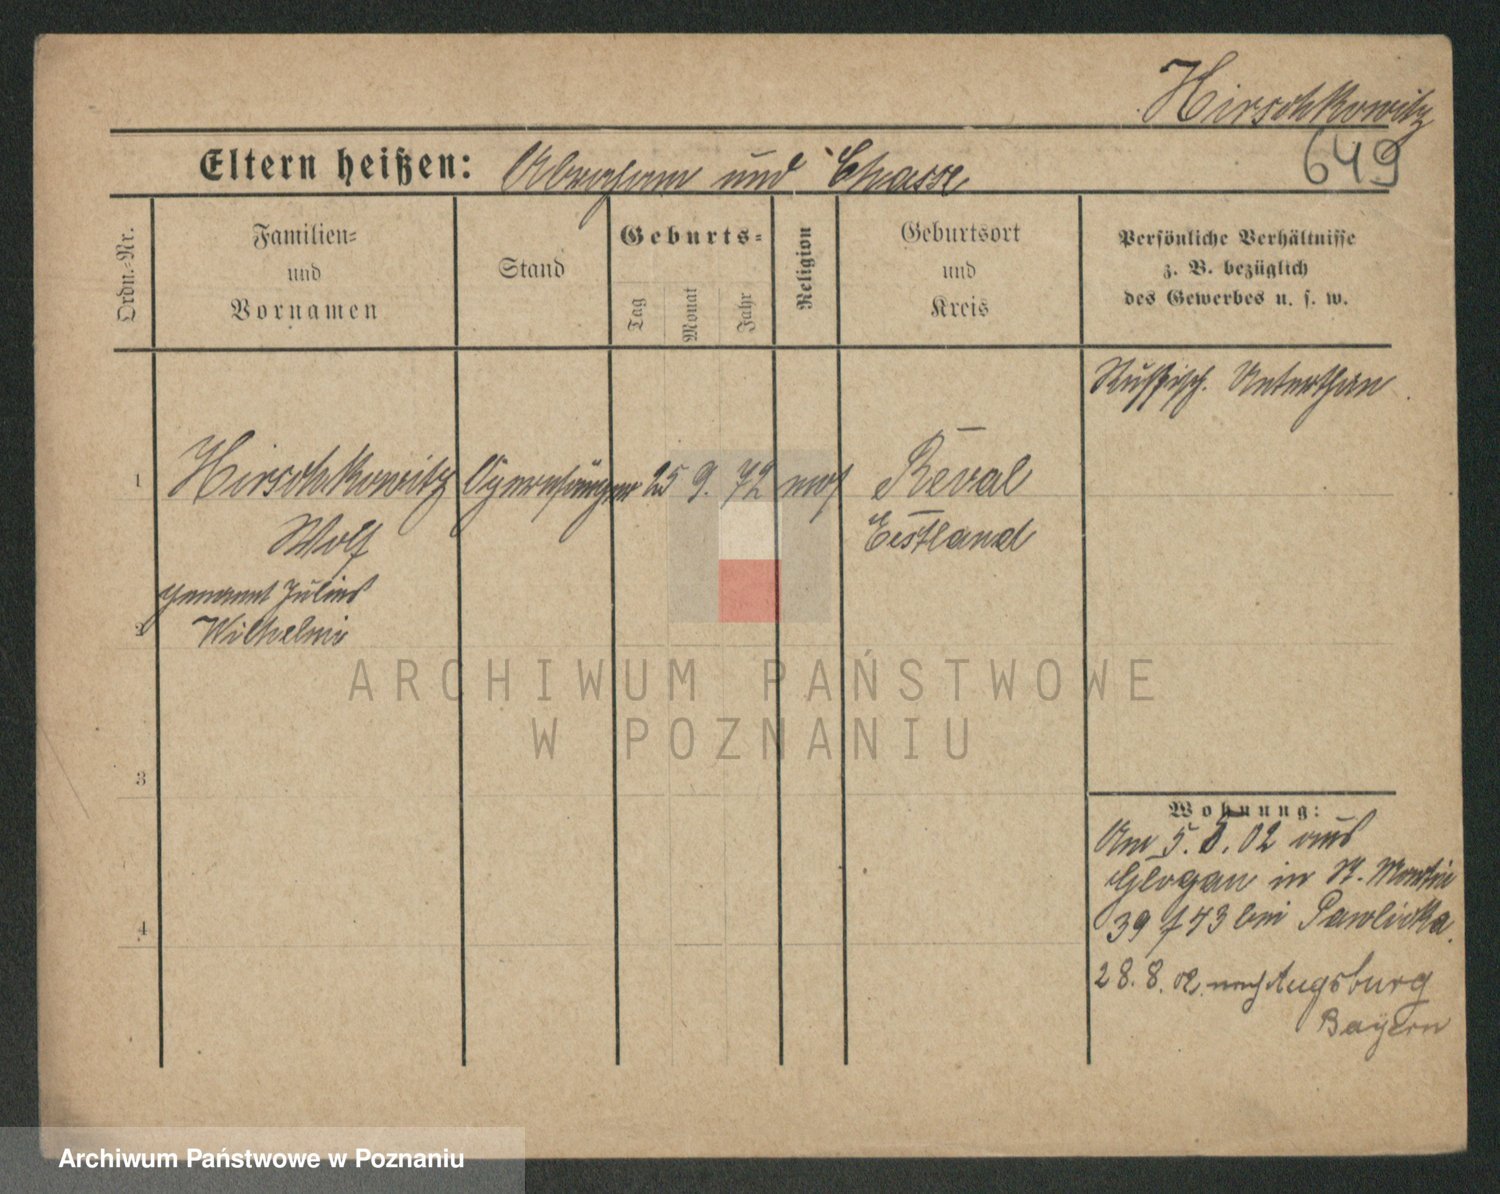 Hirschkowitz
649
Eltern heißen: Abraham und Chasse
Ordn.-Nr.
Familien-
und
Vornamen
Stand
Geburts-
Tag
Monat
Jahr
Religion
Geburtsort
und
Kreis
Persönliche Verhältnisse
z. B. bezüglich
des Gewerbes u. s. w.
Russisch. Unterthan
1 Hirschkowitz Opernsänger 25 9. 72 mos Reval
Wolf Eestland
genannt Julius
2 Wilhelmi
3
4
Wohnung:
Am 5. 8. 02 aus
Glogau in St. Martin
39 f 43 bei Pawlicka.
28. 8. 02. nach Augsburg
Bayern
ARCHIWUM PAŃSTWOWE
W POZNANIU
Archiwum Państwowe w Poznaniu